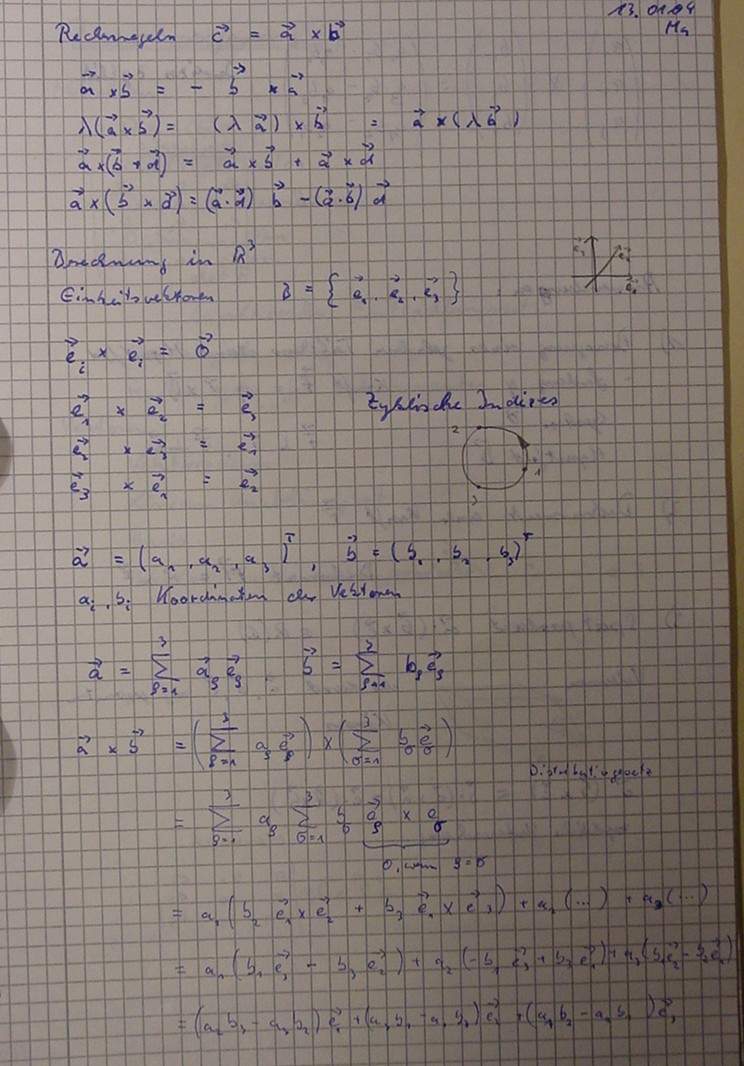 13.01.04
Ma
Rechenregeln c⃗ = a⃗ × b⃗
a⃗ × b⃗ = - b⃗ × a⃗
λ(a⃗ × b⃗) = (λ a⃗) × b⃗ = a⃗ × (λ b⃗)
a⃗ × (b⃗ + d⃗) = a⃗ × b⃗ + a⃗ × d⃗
a⃗ × (b⃗ × d⃗) = (a⃗ · d⃗) b⃗ - (a⃗ · b⃗) d⃗
Berechnung in R³
Einheitsvektoren B = { e⃗₁, e⃗₂, e⃗₃ }
e⃗₃ e⃗₂ e⃗₁
e⃗ᵢ × e⃗ᵢ = 0⃗
e⃗₁ × e⃗₂ = e⃗₃ Zyklische Indizes
e⃗₂ × e⃗₃ = e⃗₁ 2 1
e⃗₃ × e⃗₁ = e⃗₂ 3
a⃗ = (a₁, a₂, a₃)ᵀ, b⃗ = (b₁, b₂, b₃)ᵀ
aᵢ, bᵢ Koordinaten der Vektoren
a⃗ = ∑_{ρ=1}^{3} a⃗_ρ e⃗_ρ b⃗ = ∑_{ρ=1}^{3} b_ρ e⃗_ρ
a⃗ × b⃗ = (∑_{ρ=1}^{3} a_ρ e⃗_ρ) × (∑_{σ=1}^{3} b_σ e⃗_σ)
Distributivgesetz
= ∑_{ρ=1}^{3} a_ρ ∑_{σ=1}^{3} b_σ e⃗_ρ × e_σ
0, wenn ρ=σ
= a₁(b₂ e⃗₁ × e⃗₂ + b₃ e⃗₁ × e⃗₃) + a₂(...) + a₃(...)
= a₁(b₂ e⃗₃ - b₃ e⃗₂) + a₂(-b₁ e⃗₃ + b₃ e⃗₁) + a₃(b₁e⃗₂ - b₂e⃗₁)
= (a₂b₃ - a₃b₂) e⃗₁ + (a₃b₁ - a₁b₃) e⃗₂ + (a₁b₂ - a₂b₁) e⃗₃